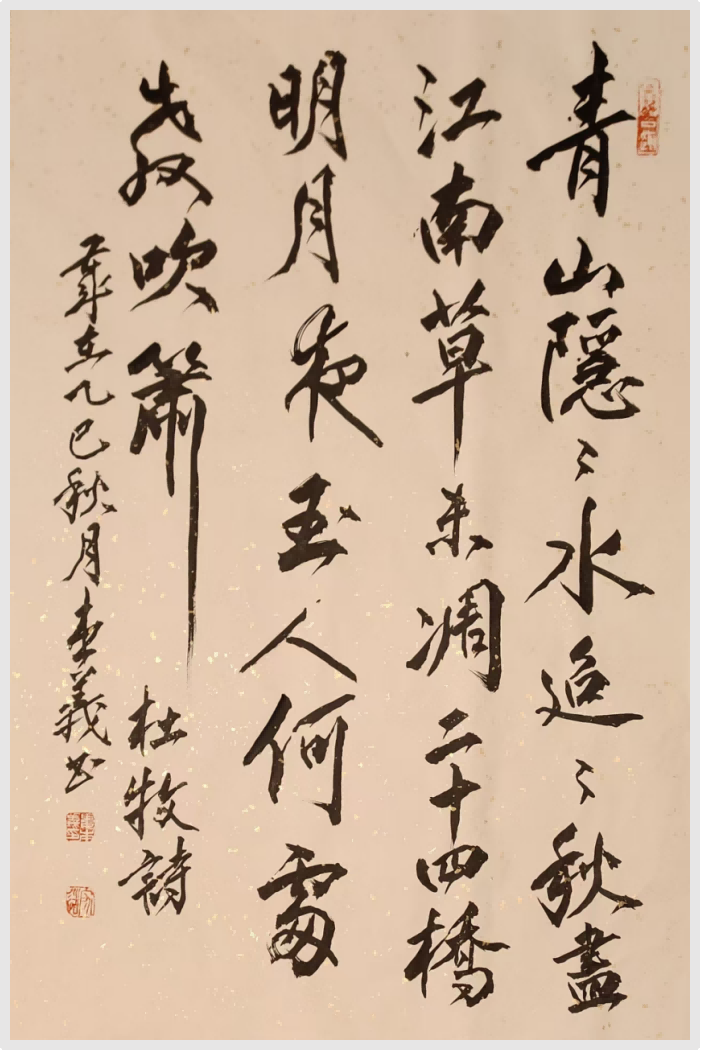 青山隱〻水迢〻秋盡
江南草未凋二十四橋
明月夜玉人何處
教吹簫 杜牧詩
歲在乙巳秋月義书